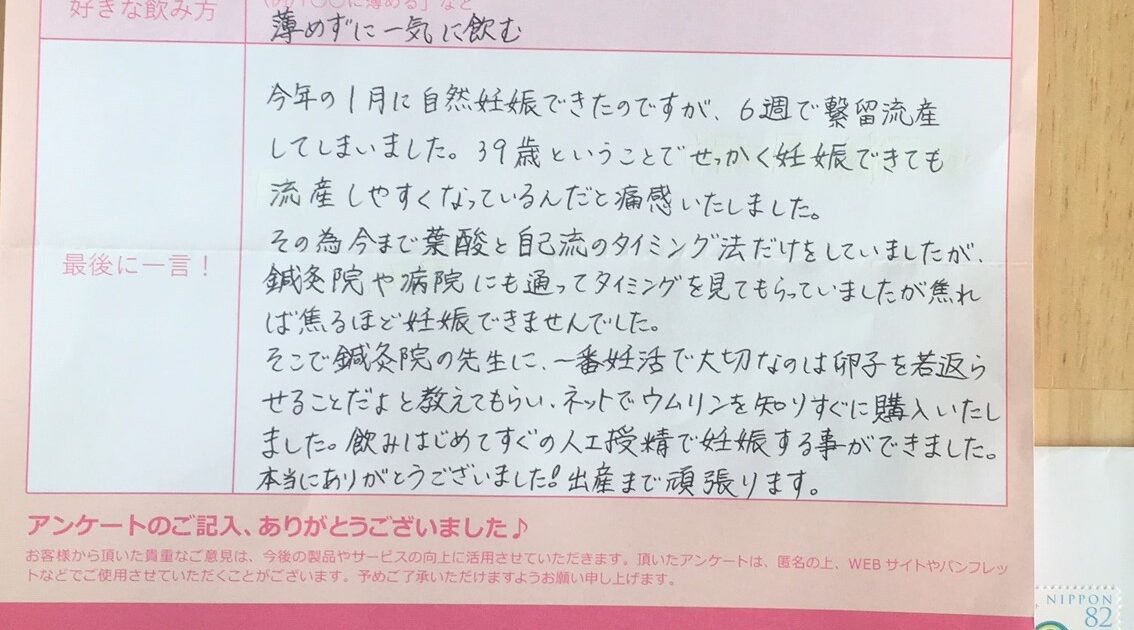 好きな飲み方
(例)「○○に薄める」など
薄めずに一気に飲む
最後に一言!
今年の1月に自然妊娠できたのですが、6週で繋留流産
してしまいました。39歳ということでせっかく妊娠できても
流産しやすくなっているんだと痛感いたしました。
その為今まで葉酸と自己流のタイミング法だけをしていましたが、
鍼灸院や病院にも通ってタイミングを見てもらっていましたが焦れ
ば焦るほど妊娠できませんでした。
そこで鍼灸院の先生に、一番妊活で大切なのは卵子を若返ら
せることだよと教えてもらい、ネットでウムリンを知りすぐに購入いたし
ました。飲みはじめてすぐの人工授精で妊娠する事ができました。
本当にありがとうございました!出産まで頑張ります。
アンケートのご記入、ありがとうございました♪
お客様から頂いた貴重なご意見は、今後の製品やサービスの向上に活用させていただきます。頂いたアンケートは、匿名の上、WEBサイトやパンフレッ
トなどでご使用させていただくことがございます。予めご了承いただけますようお願い申し上げます。
NIPPON
82